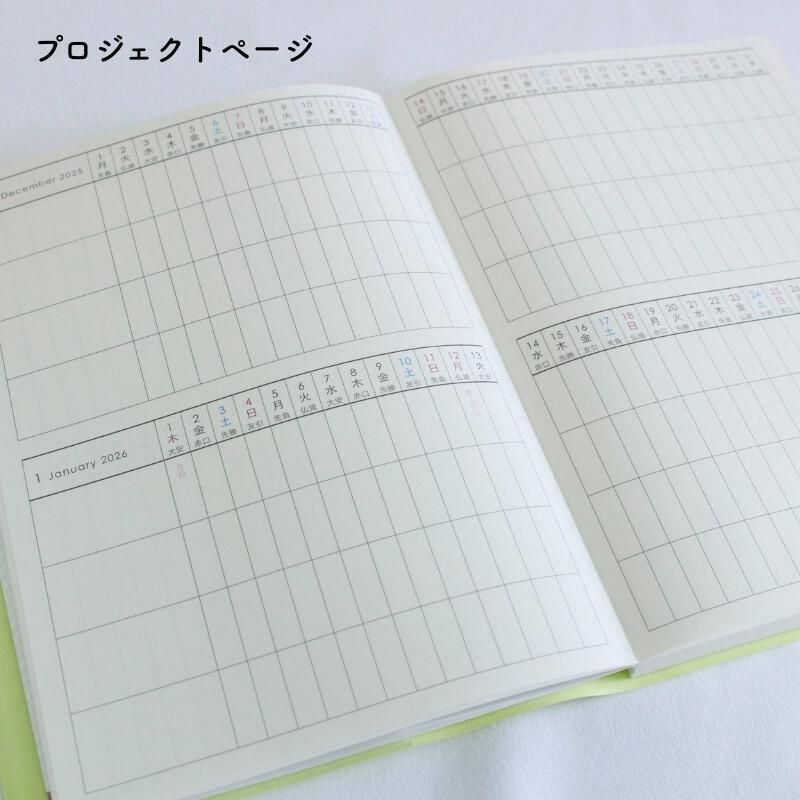 プロジェクトページ
December 2025
1 2 3 4 5 6 7 8 9 10 11 12 13
月 火 水 木 金 土 日 月 火 水 木 金 土
先負 仏滅 大安 赤口 先勝 友引 先負 仏滅 大安 赤口 先勝
14 15 16 17 18 19 20 21 22 23 24 25 26 27 28 29 30 31
日 月 火 水 木 金 土 日 月 火 水 木 金 土 日 月 火 水
1 January 2026
1 2 3 4 5 6 7 8 9 10 11 12 13
木 金 土 日 月 火 水 木 金 土 日 月 火
大安 赤口 先勝 友引 先負 仏滅 大安 赤口 先勝 友引 先負 仏滅 大安
元日 成人の日
14 15 16 17 18 19 20 21 22 23 24 25 26
水 木 金 土 日 月 火 水 木 金 土 日 月
赤口 先勝 友引 先負 仏滅 赤口 先勝 友引 先負 仏滅 大安 赤口